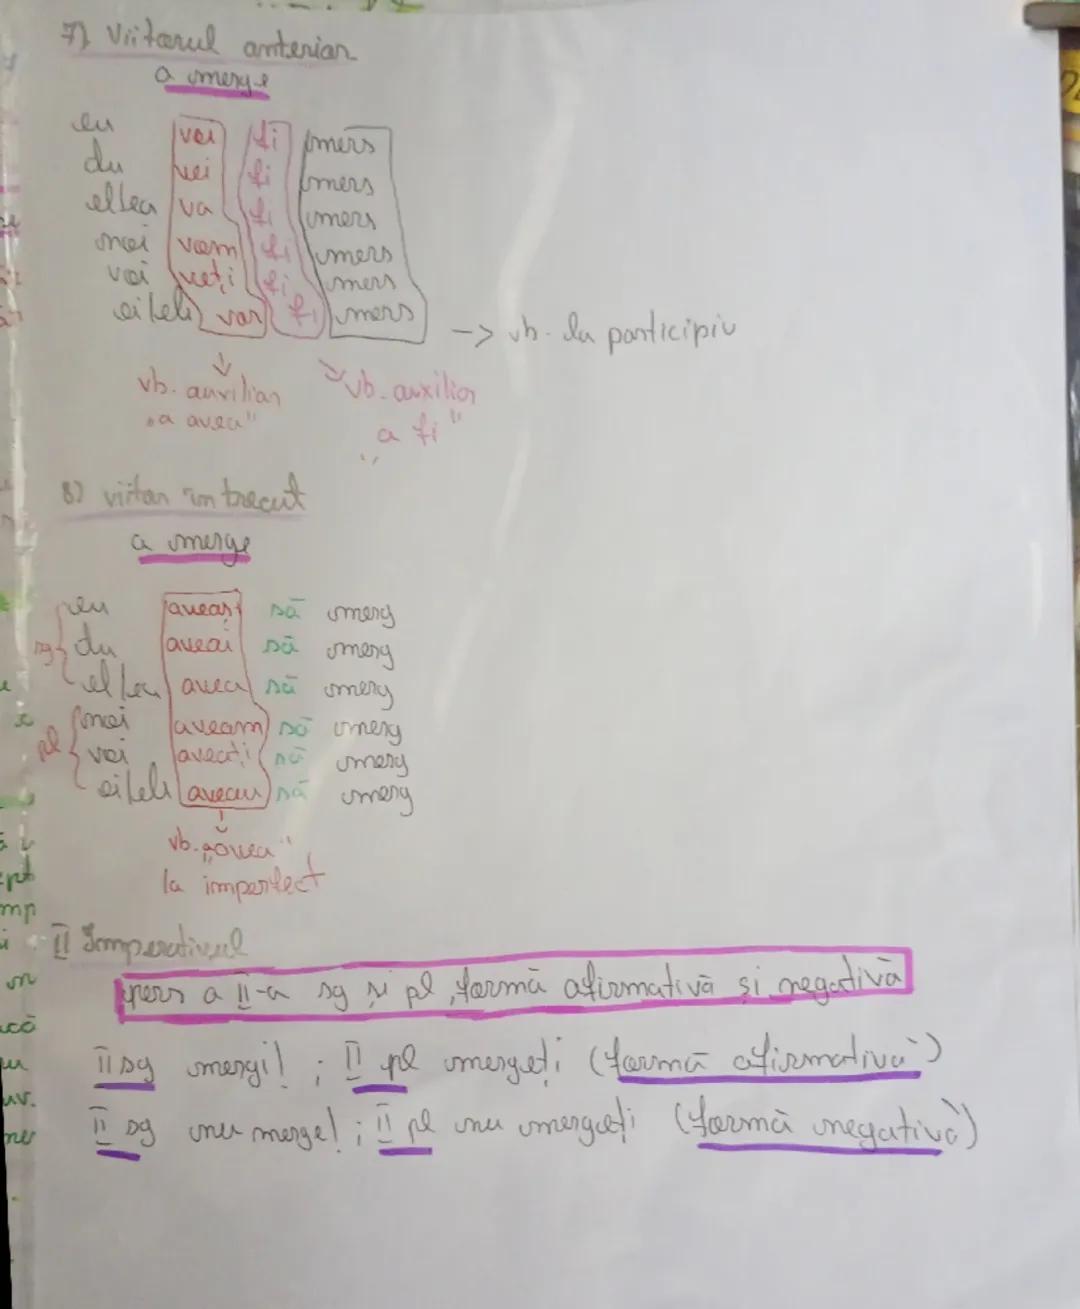 7) Viitorul anterior
a merge
eu voi fi mers
du vei fi mers
el/ea va fi mers
noi vom fi mers
voi veți fi mers
ei/ele vor fi mers
-> vb. la participiu
vb. auxiliar vb. auxiliar
„a avea" „a fi"
8) viitor în trecut
a merge
sg eu aveaș să merg
du aveai să merg
el/ea avea să merg
pl noi aveam să merg
voi aveați să merg
ei/ele aveau să merg
vb. „avea"
la imperfect
II Imperativul
pers a II-a sg și pl, formă afirmativă și negativă
II sg mergi! ; II pl mergeți (formă afirmativă)
II sg nu merge! ; II pl nu mergeți (formă negativă)